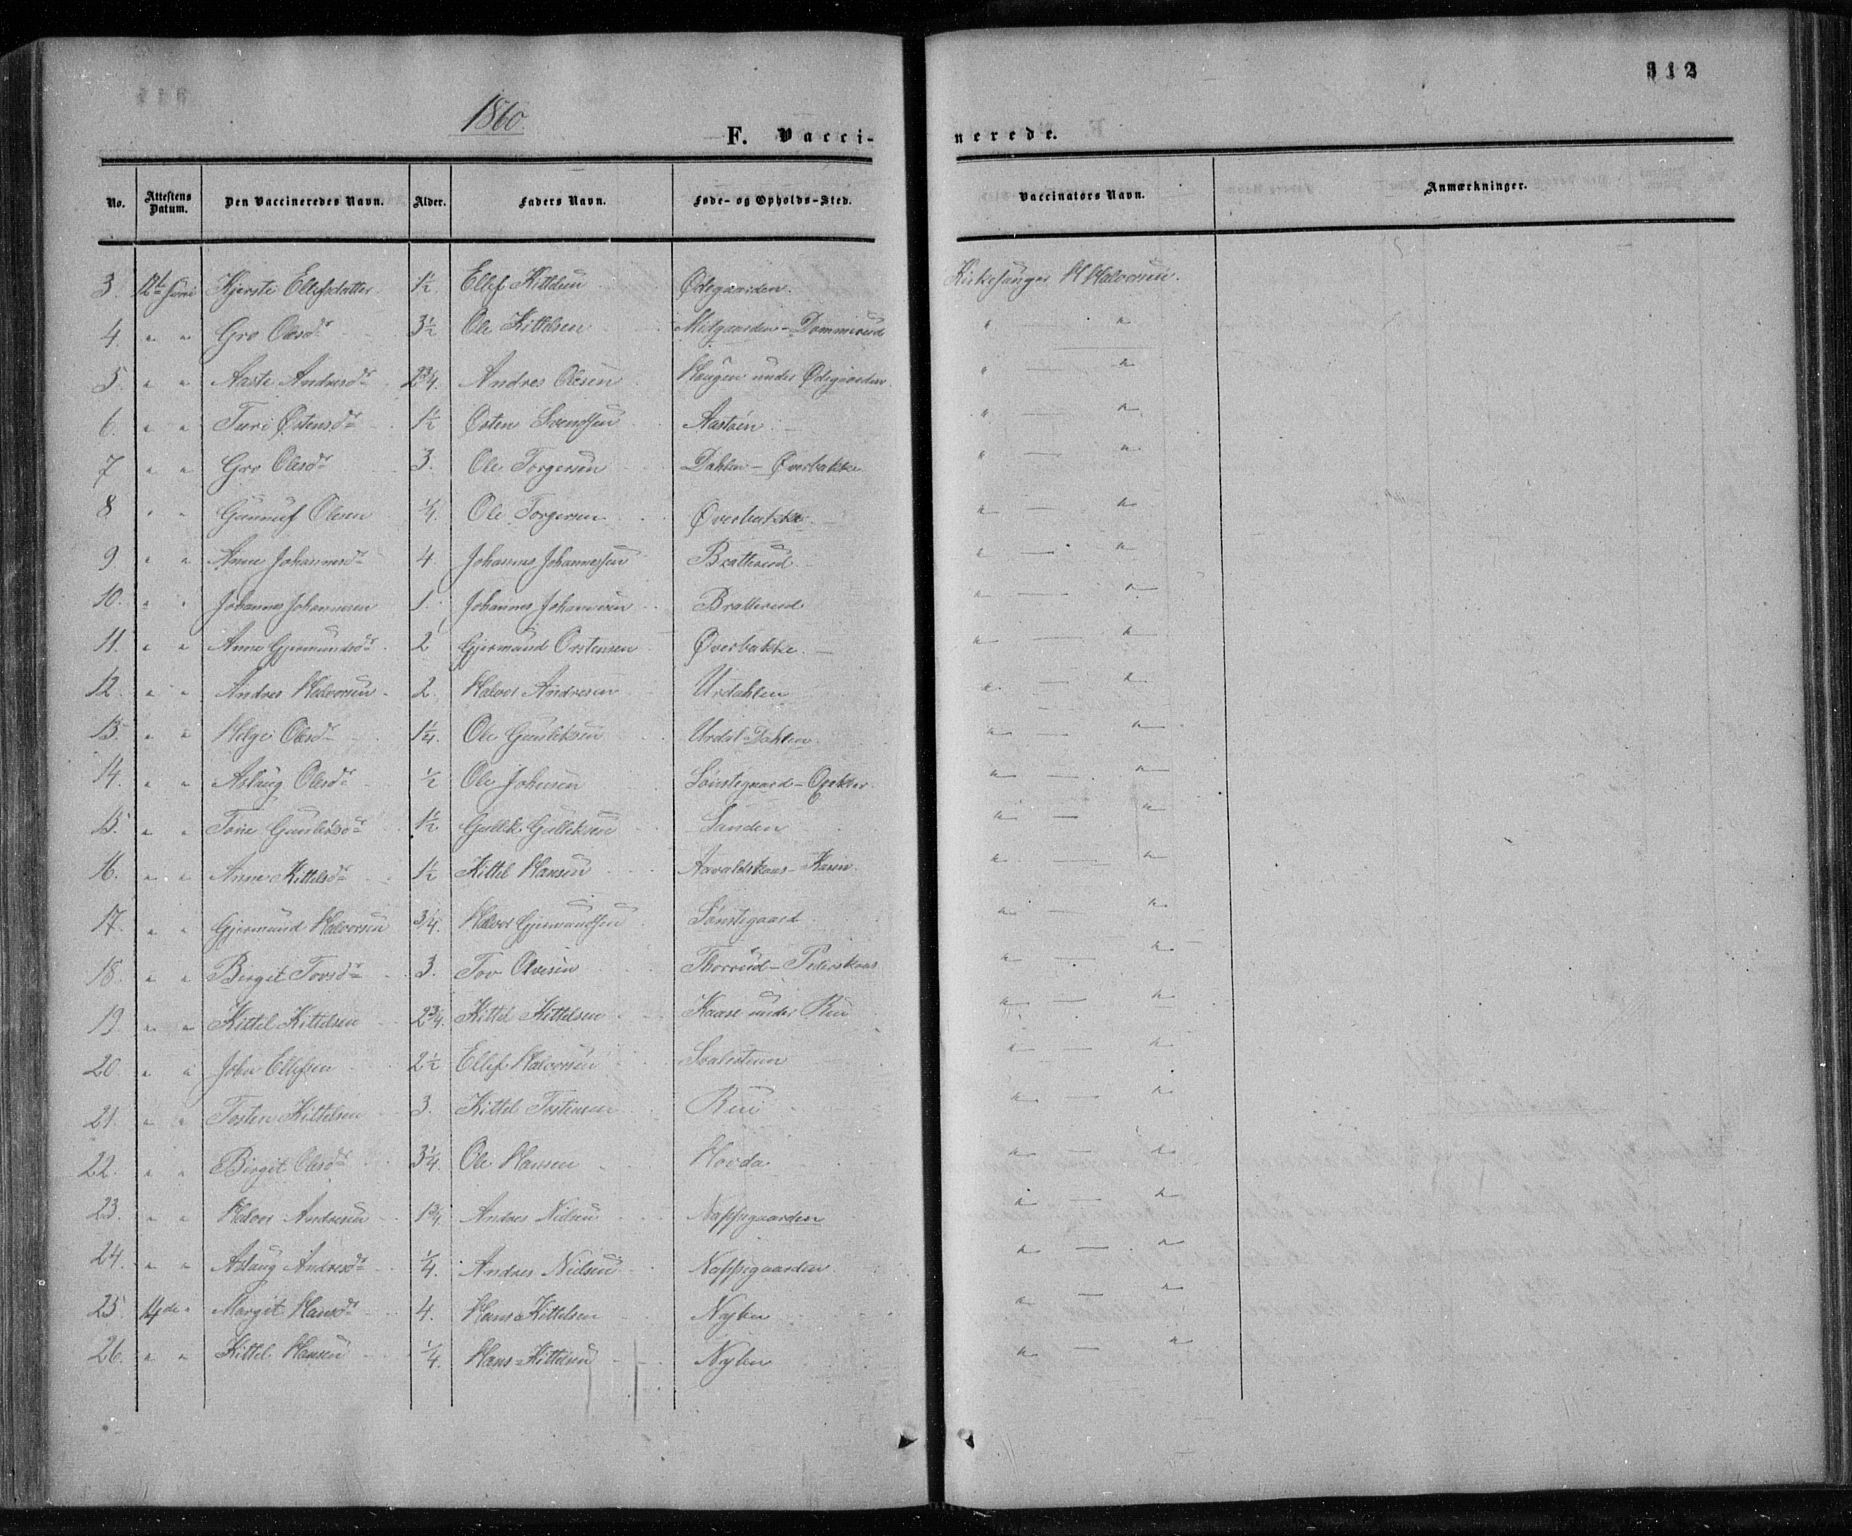 312
1860
F. Vaccinerede.
No. Attestens Datum. Den Vaccineredes Navn. Alder. Faders Navn. Føde- og Opholds-Sted. Vaccinators Navn. Anmærkninger.
3. 12te Juni Kjersti Ellefsdatter 1½ Ellef Kittelsen Ødegaarden. Kirkesanger H Halvorsen.
4. " " Gro Olesdr 3½ Ole Kittelsen Midgaarden - Dommerud " — "
5 " " Aaste Andresdr 2¾ Andres Olesen Haugen under Ødegaarden " — "
6. " " Turi Østensdr 1½ Østen Svendsen Aastøen " — "
7 " " Gro Olesdr 3. Ole Torgersen Dahlen - Øverbakke " — "
8 " " Gunnuf Olesen ¼ Ole Torgersen Øverbakke " — "
9 " " Anne Johannesdr 4 Johannes Johannessen Bratterud " — "
10. " " Johannes Johannesen 1. Johannes Johannesen Bratterud " — "
11. " " Anne Gjermundsdr 2 Gjermund Østensen Øverbakke. " — "
12. " " Andres Halvorsen 2. Halvor Andresen Urdahlen " — "
13. " " Helge Olesdr 1¼ Ole Gunleksen Dahlen " — "
14. " " Aslaug Olesdr ½ Ole Johnsen Sønstegaard - " — "
15. " " Tone 1½ Gullik Gulleksen Sanden " — "
16. " " Anne Kittelsdr 1½ Kittel Hansen " — "
17. " " Gjermund Halvorsen ¾. Halvor Gjermundsen Sønstegaard " — "
18. " " Birgit Tovsdr 3. Tov Olvesen Thorrud - " — "
19. " " Kittel Kittelsen 2¾. Kittel Kittelsen Kaase under Rui " — "
20. " " John Ellefsen 2½ Ellef Halvorsen " — "
21. " " Tosten Kittelsen 3. Kittel Tostensen Rui " — "
22. " " Birgit Olesdr 3¼ Ole Hansen Hovda " — "
23. " " Halvor Andresen 1¾ Andres Nielsen Nappegaarden " — "
24. " " Aslaug Andresdr ¼ Andres Nielsen Nappegaarden " — "
25 14de " Margit Hansdr 4. Hans Kittelsen Nyhus " — "
26. " " Kittel Hansen ¼. Hans Kittelsen Nyhus " — "